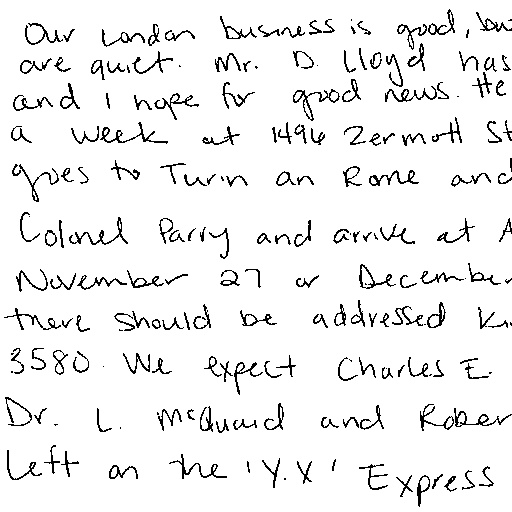 Our London business is good, bu
are quiet. Mr. D. Lloyd has
and I hope for good news. He
a week at 1496 Zermott St
goes to Turin an Rome and
Colonel Parry and arrive at A
November 27 or December
there should be addressed K
3580. We expect Charles E.
Dr. L. McQuaid and Rober
Left on the 'Y.X' Express